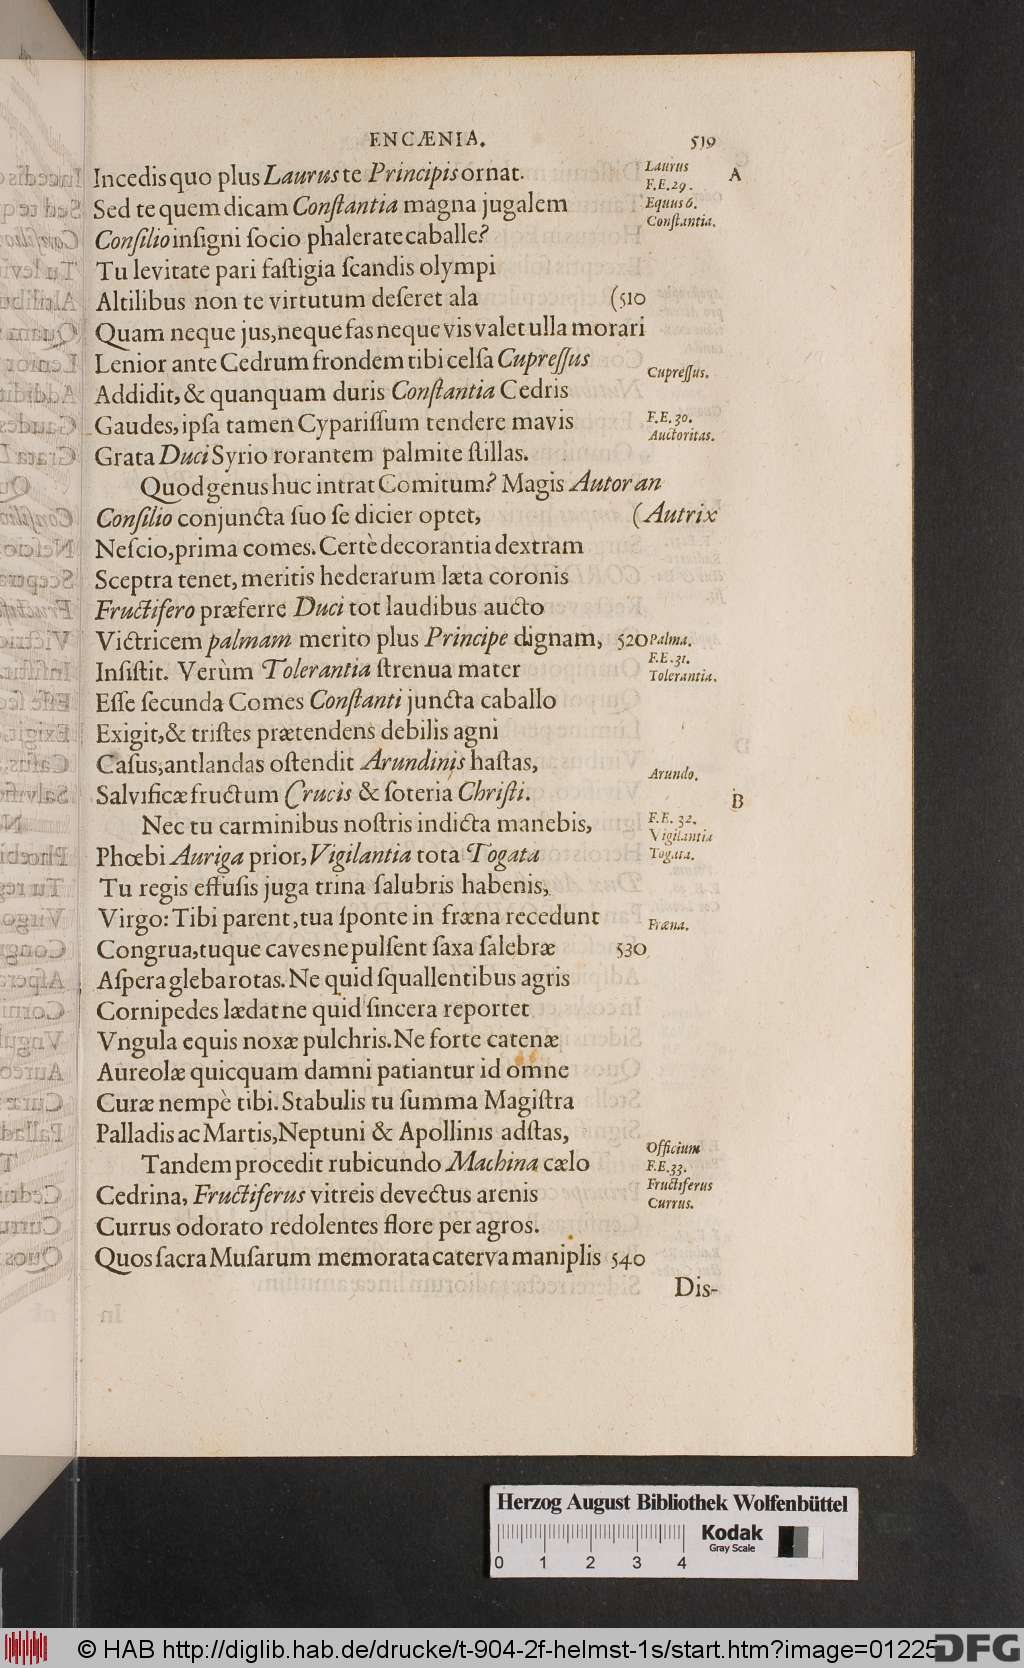 ENCÆNIA. 519
Incedis quo plus Laurus te Principis ornat. Laurus A
F.E.29.
Sed te quem dicam Conſtantia magna jugalem Equus 6.
Conſtantia.
Conſilio inſigni ſocio phalerate caballe?
Tu levitate pari faſtigia ſcandis olympi
Altilibus non te virtutum deſeret ala (510
Quam neque jus, neque fas neque vis valet ulla morari
Lenior ante Cedrum frondem tibi celſa Cupreſſus
Cupreſſus.
Addidit, & quanquam duris Conſtantia Cedris
Gaudes, ipſa tamen Cypariſſum tendere mavis F.E.30.
Auctoritas.
Grata Duci Syrio rorantem palmite ſtillas.
Quod genus huc intrat Comitum? Magis Autor an
Conſilio conjuncta ſuo ſe dicier optet, (Autrix
Neſcio, prima comes. Certè decorantia dextram
Sceptra tenet, meritis hederarum læta coronis
Fructifero præferre Duci tot laudibus aucto
Victricem palmam merito plus Principe dignam, 520 Palma.
F.E.31.
Inſiſtit. Verùm Tolerantia ſtrenua mater Tolerantia.
Eſſe ſecunda Comes Conſtanti juncta caballo
Exigit, & triſtes prætendens debilis agni
Caſus, antlandas oſtendit Arundinis haſtas, Arundo.
Salvificæ fructum Crucis & ſoteria Chriſti. B
Nec tu carminibus noſtris indicta manebis, F.E. 32.
Vigilantia
Phœbi Auriga prior, Vigilantia tota Togata Togata.
Tu regis effuſis juga trina ſalubris habenis,
Virgo: Tibi parent, tua ſponte in fræna recedunt Fræna.
Congrua, tuque caves ne pulſent ſaxa ſalebræ 530
Aſpera gleba rotas. Ne quid ſquallentibus agris
Cornipedes lædat ne quid ſincera reportet
Vngula equis noxæ pulchris. Ne forte catenæ
Aureolæ quicquam damni patiantur id omne
Curæ nempè tibi. Stabulis tu ſumma Magiſtra
Palladis ac Martis, Neptuni & Apollinis adſtas,
Officium
Tandem procedit rubicundo Machina cælo F.E.33.
Cedrina, Fructiferus vitreis devectus arenis Fructiferus
Currus.
Currus odorato redolentes flore per agros.
Quos ſacra Muſarum memorata caterva maniplis 540
Dis-
Herzog August Bibliothek Wolfenbüttel
Kodak
Gray Scale
0 1 2 3 4
© HAB http://diglib.hab.de/drucke/t-904-2f-helmst-1s/start.htm?image=01225
DFG